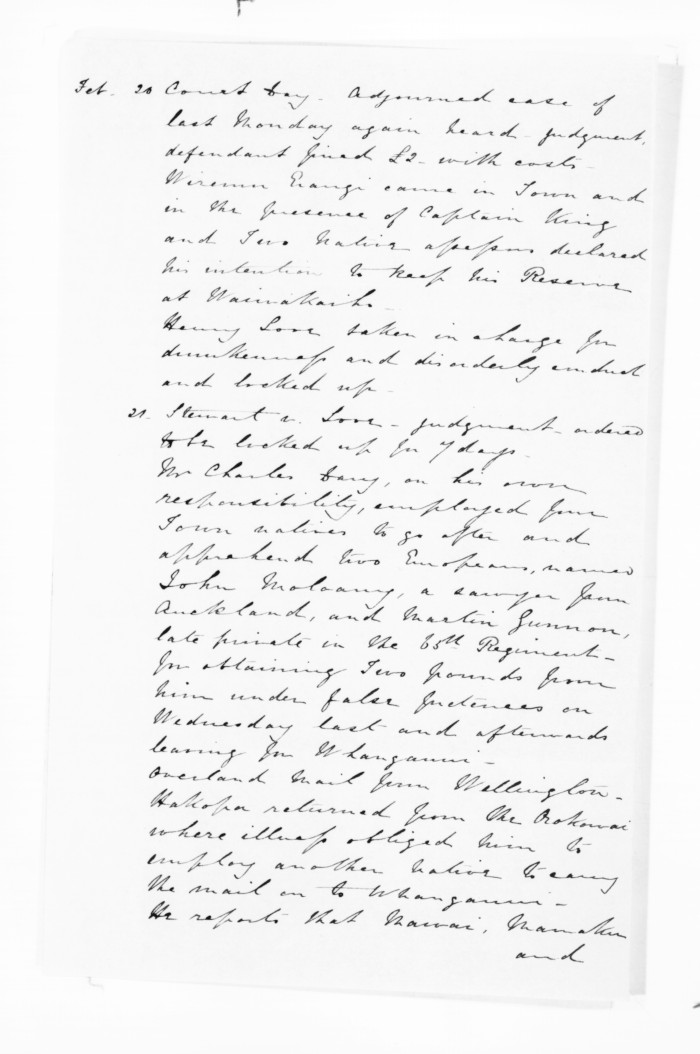 Feb. 20 Court Day - Adjourned case of
last Monday again heard - judgment,
defendant fined £2 - with costs -
Wiremu Erangi came in Town and
in the presence of Captain King
and Two Native assessors declared
his intention to keep his Reserve
at Waiwakaiho -
Henry Love taken in charge for
drunkenness and disorderly conduct
and locked up -
21. Stewart v. Love - judgment - ordered
to be locked up for 7 days -
Mr Charles Davy, on his own
responsibility, employed four
Town natives to go after and
apprehend two Europeans, named
John Moloany, a sawyer from
Auckland, and Martin Gunnon,
late private in the 65th Regiment -
for obtaining Two pounds from
him under false pretences on
Wednesday last and afterwards
leaving for Whanganui -
Overland Mail from Wellington -
Hakopa returned from the Orokowai
where illness obliged him to
employ another native to carry
the mail on to Whanganui -
He reports that Mawai, Mamaku
and